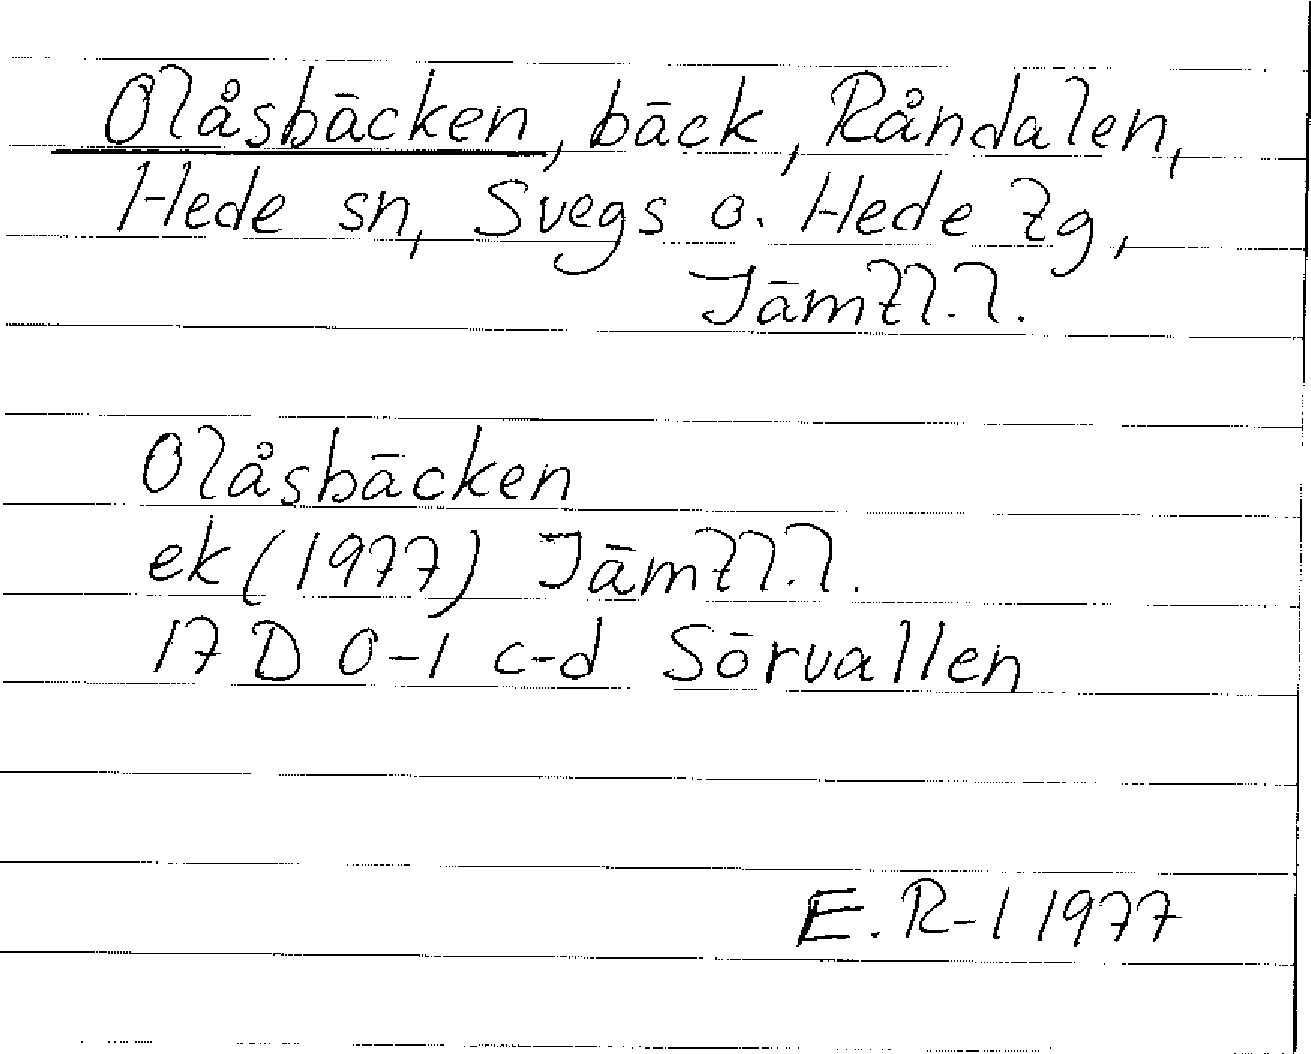 Olåsbäcken, bäck, Råndalen,
Hede sn, Svegs o. Hede tg,
Jämtl.l.
Olåsbäcken
ek (1977) Jämtl.l.
17 D 0-1 c-d Sörvallen
E. R-l 1977